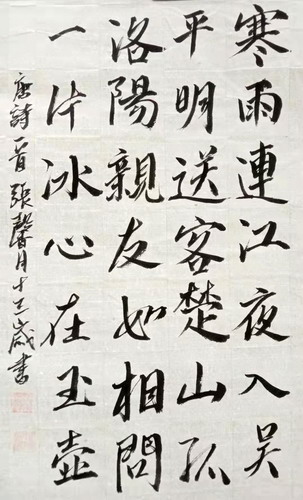 寒雨連江夜入吴
平明送客楚山孤
洛陽親友如相問
一片冰心在玉壺
唐詩一首張馨月十三歲書